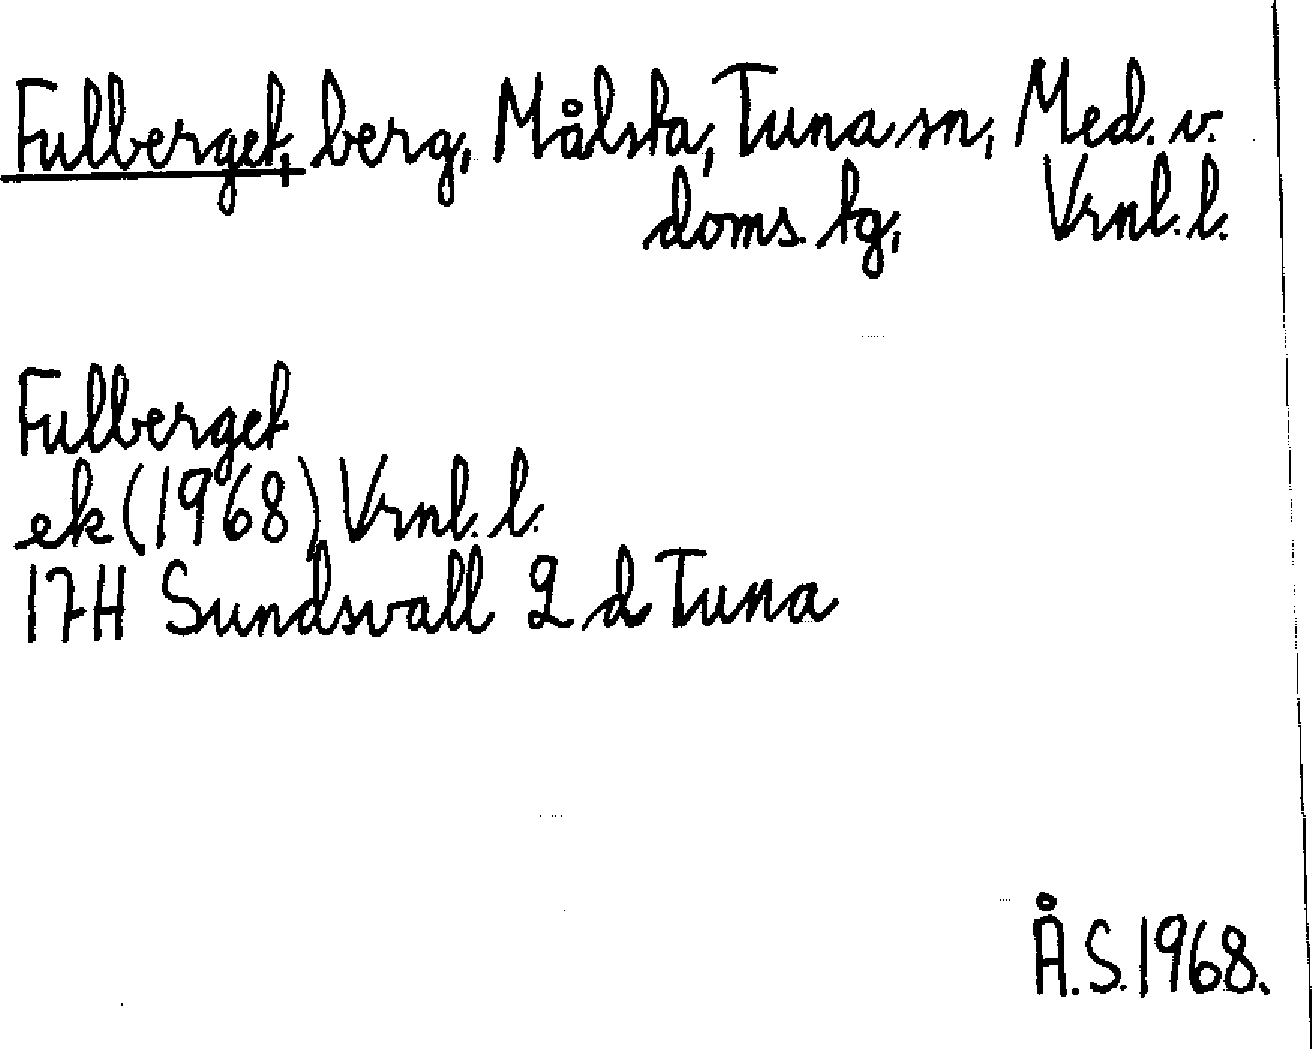 Fulberget, berg, Målsta, Tuna sn, Med. v.
doms. tg, Vrnl. l.
Fulberget
ek (1968) Vrnl. l.
17H Sundsvall 2 d Tuna
Å.S. 1968.